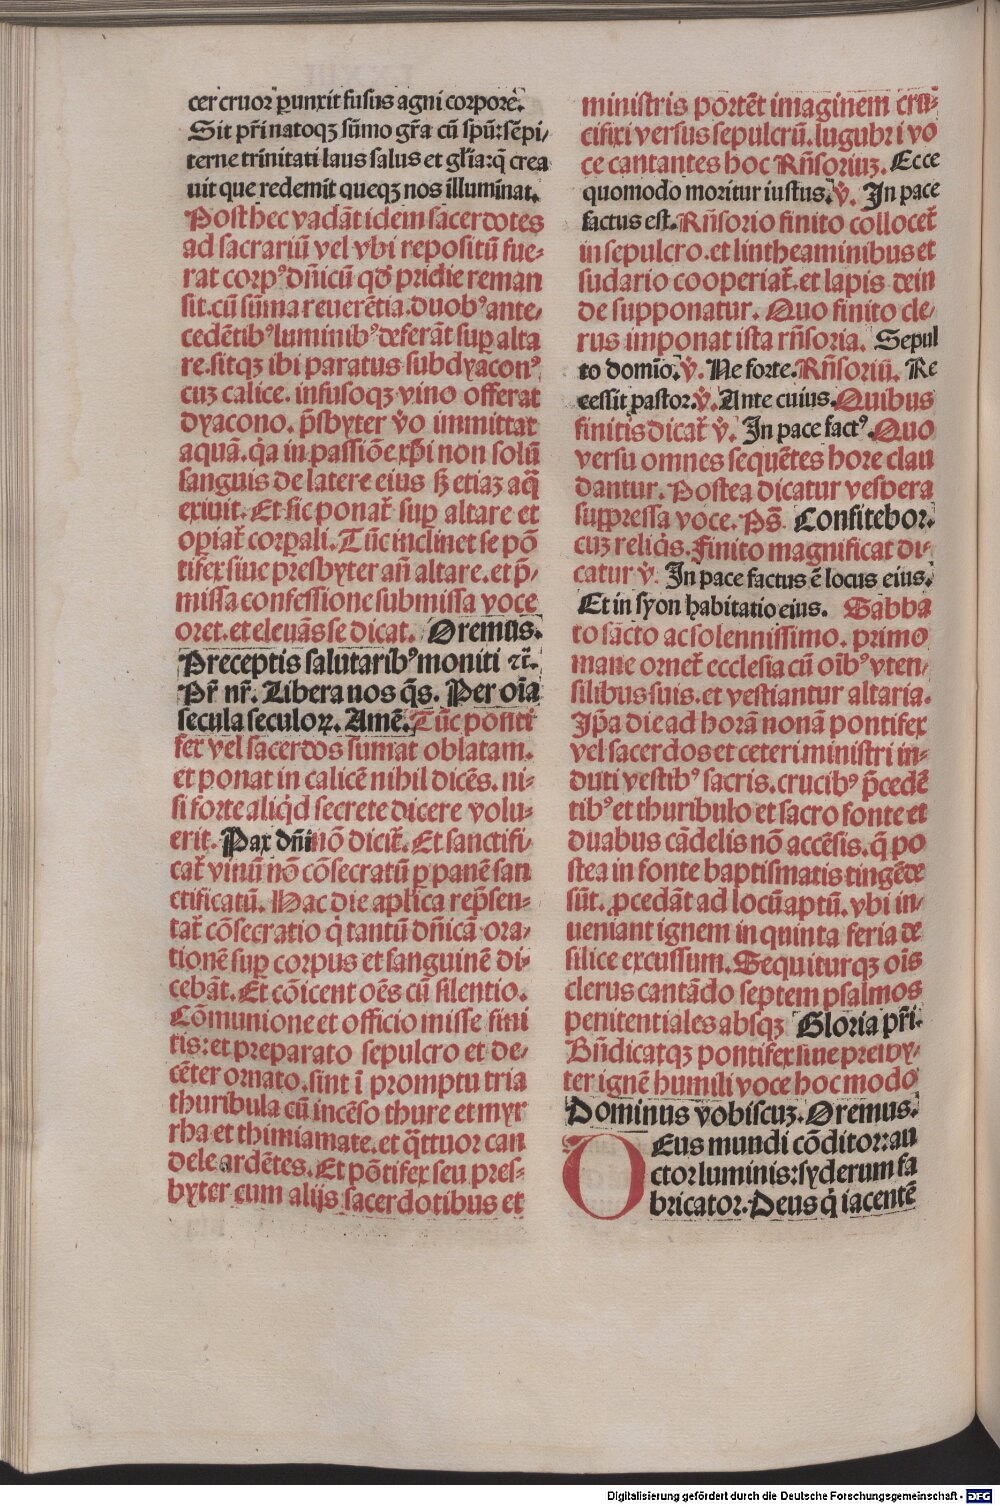 cer cruor ꝑunxit fusus agni corpore.
Sit pr̄i natoqꝫ sūmo gr̄a cū spū: sēpi⸗
terne trinitati laus salus et gl̄ia: q̄ crea
uit que redemit queqꝫ nos illuminat.
Post hec vadāt idem sacerdotes
ad sacrariū vel vbi repositū fue⸗
rat corpꝰ dn̄icū qd̄ pridie reman
sit. cū sūma reuerētia. duobꝰ ante⸗
cedētibꝰ luminibꝰ deferāt suꝑ alta
re. sitqꝫ ibi paratus subdyaconꝰ
cuꝫ calice. infusoqꝫ vino offerat
dyacono. p̄sbyter v̄o immittat
aquā. q̇a in passiōe xp̄i non solū
sanguis de latere eius sꝫ etiaꝫ aq̄
exiuit. Et sic ponat̄ suꝑ altare et
oꝑiat̄ corꝑali. Tūc inclinet se pō
tifex siue presbyter an̄ altare. et p̄⸗
missa confessione submissa voce
oret. et eleuās se dicat. Oremus.
Preceptis salutaribꝰ moniti ⁊c̄.
Pr̄ nr̄. Libera nos q̄s. Per oīa
secula seculoꝝ. Amē. Tūc ponti
fex vel sacerdos sumat oblatam.
et ponat in calicē nihil dicēs. ni⸗
si forte aliq̇d secrete dicere volu⸗
erit. Pax dn̄i nō dicit̄. Et sanctifi⸗
cat̄ vinū nō cōsecratū ꝑ panē san
ctificatū. Hac die apl̄ica rep̄sen⸗
tat̄ cōsecratio q̇ tantū dn̄icā ora⸗
tionē suꝑ corpus et sanguinē di⸗
cebāt. Et cōicent oēs cū silentio.
Cōmunione et officio misse fini
tis: et preparato sepulcro et de⸗
cēter ornato. sint ī promptu tria
thuribula cū incēso thure et myr
rha et thimiamate. et q̄ttuor can
dele ardētes. Et pōtifex seu pres⸗
byter cum alijs sacerdotibus et
ministris portēt imaginem cru⸗
cifixi versus sepulcrū. lugubri vo
ce cantantes hoc Rn̄soriuꝫ. Ecce
quomodo moritur iustus. v̄. In pace
factus est. Rn̄sorio finito collocet̄
in sepulcro. et lintheaminibus et
sudario cooperiat̄. et lapis dein
de supponatur. Quo finito cle⸗
rus imponat ista rn̄soria. Sepul
to domīo. v̄. Ne forte. Rn̄soriū. Re
cessit pastor. v̄. Ante cuius. Quibus
finitis dicat̄ v̄. In pace factꝰ. Quo
versu omnes sequētes hore clau
dantur. Postea dicatur vespera
suppressa voce. Ps̄. Confitebor.
cuꝫ reliq̇s. Finito magnificat di⸗
catur v̄. In pace factus ē locus eius.
Et in syon habitatio eius. Sabba
to sācto ac solennissimo. primo
mane ornet̄ ecclesia cū oībꝰ vten⸗
silibus suis. et vestiantur altaria.
Ip̄a die ad horā nonā pontifex
vel sacerdos et ceteri ministri in⸗
duti vestibꝰ sacris. crucibꝰ p̄cedē
tibꝰ et thuribulo et sacro fonte et
duabus cādelis nō accēsis. q̄ po
stea in fonte baptismatis tingēde
sūt. ꝓcedāt ad locū aptū. vbi in⸗
ueniant ignem in quinta feria de
silice excussum. Sequiturqꝫ oīs
clerus cantādo septem psalmos
penitentiales absqꝫ Gloria pr̄i.
Bn̄dicatqꝫ pontifex siue presby⸗
ter ignē humili voce hoc modo
Dominus vobiscuꝫ. Oremus.
Deus mundi cōditor: au
ctor luminis: syderum fa
bricator. Deus q̇ iacentē
Digitalisierung gefördert durch die Deutsche Forschungsgemeinschaft - DFG